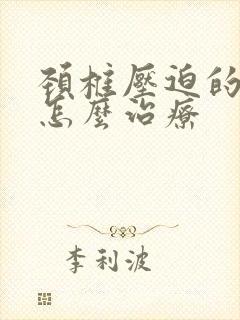 頚椎壓迫的
怎麼治療
李利波